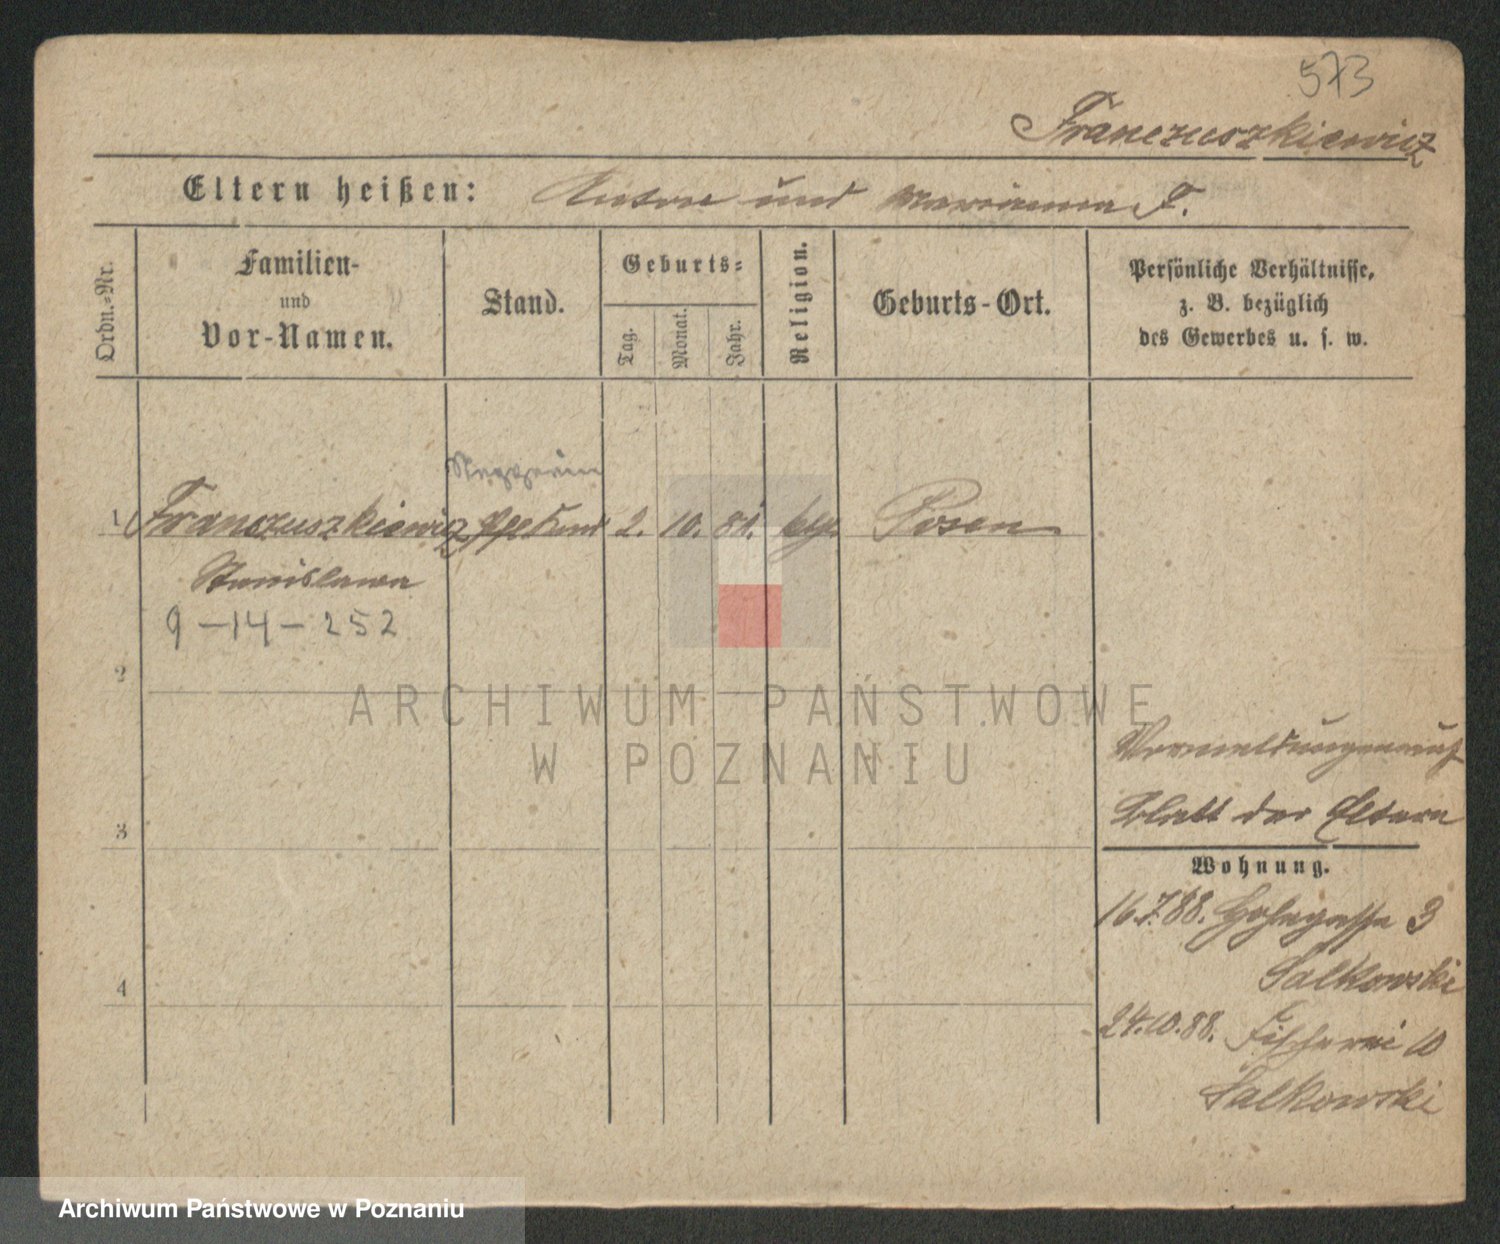 573
Franczuszkiewicz
Eltern heißen: Anton und Marianna F.
Ordn.-Nr.
Familien-
und
Vor-Namen.
Stand.
Geburts-
Tag.
Monat.
Jahr.
Religion.
Geburts-Ort.
Persönliche Verhältnisse,
z. B. bezüglich
des Gewerbes u. s. w.
1 Franczuszkiewicz 2. 10. 81. Posen
Stanislawa
9-14-252
2
3
4
blatt der Eltern
Wohnung.
16.7.88. 3
Salkowski
24.10.88. Fischerei 10
Salkowski
ARCHIWUM PAŃSTWOWE
W POZNANIU
Archiwum Państwowe w Poznaniu